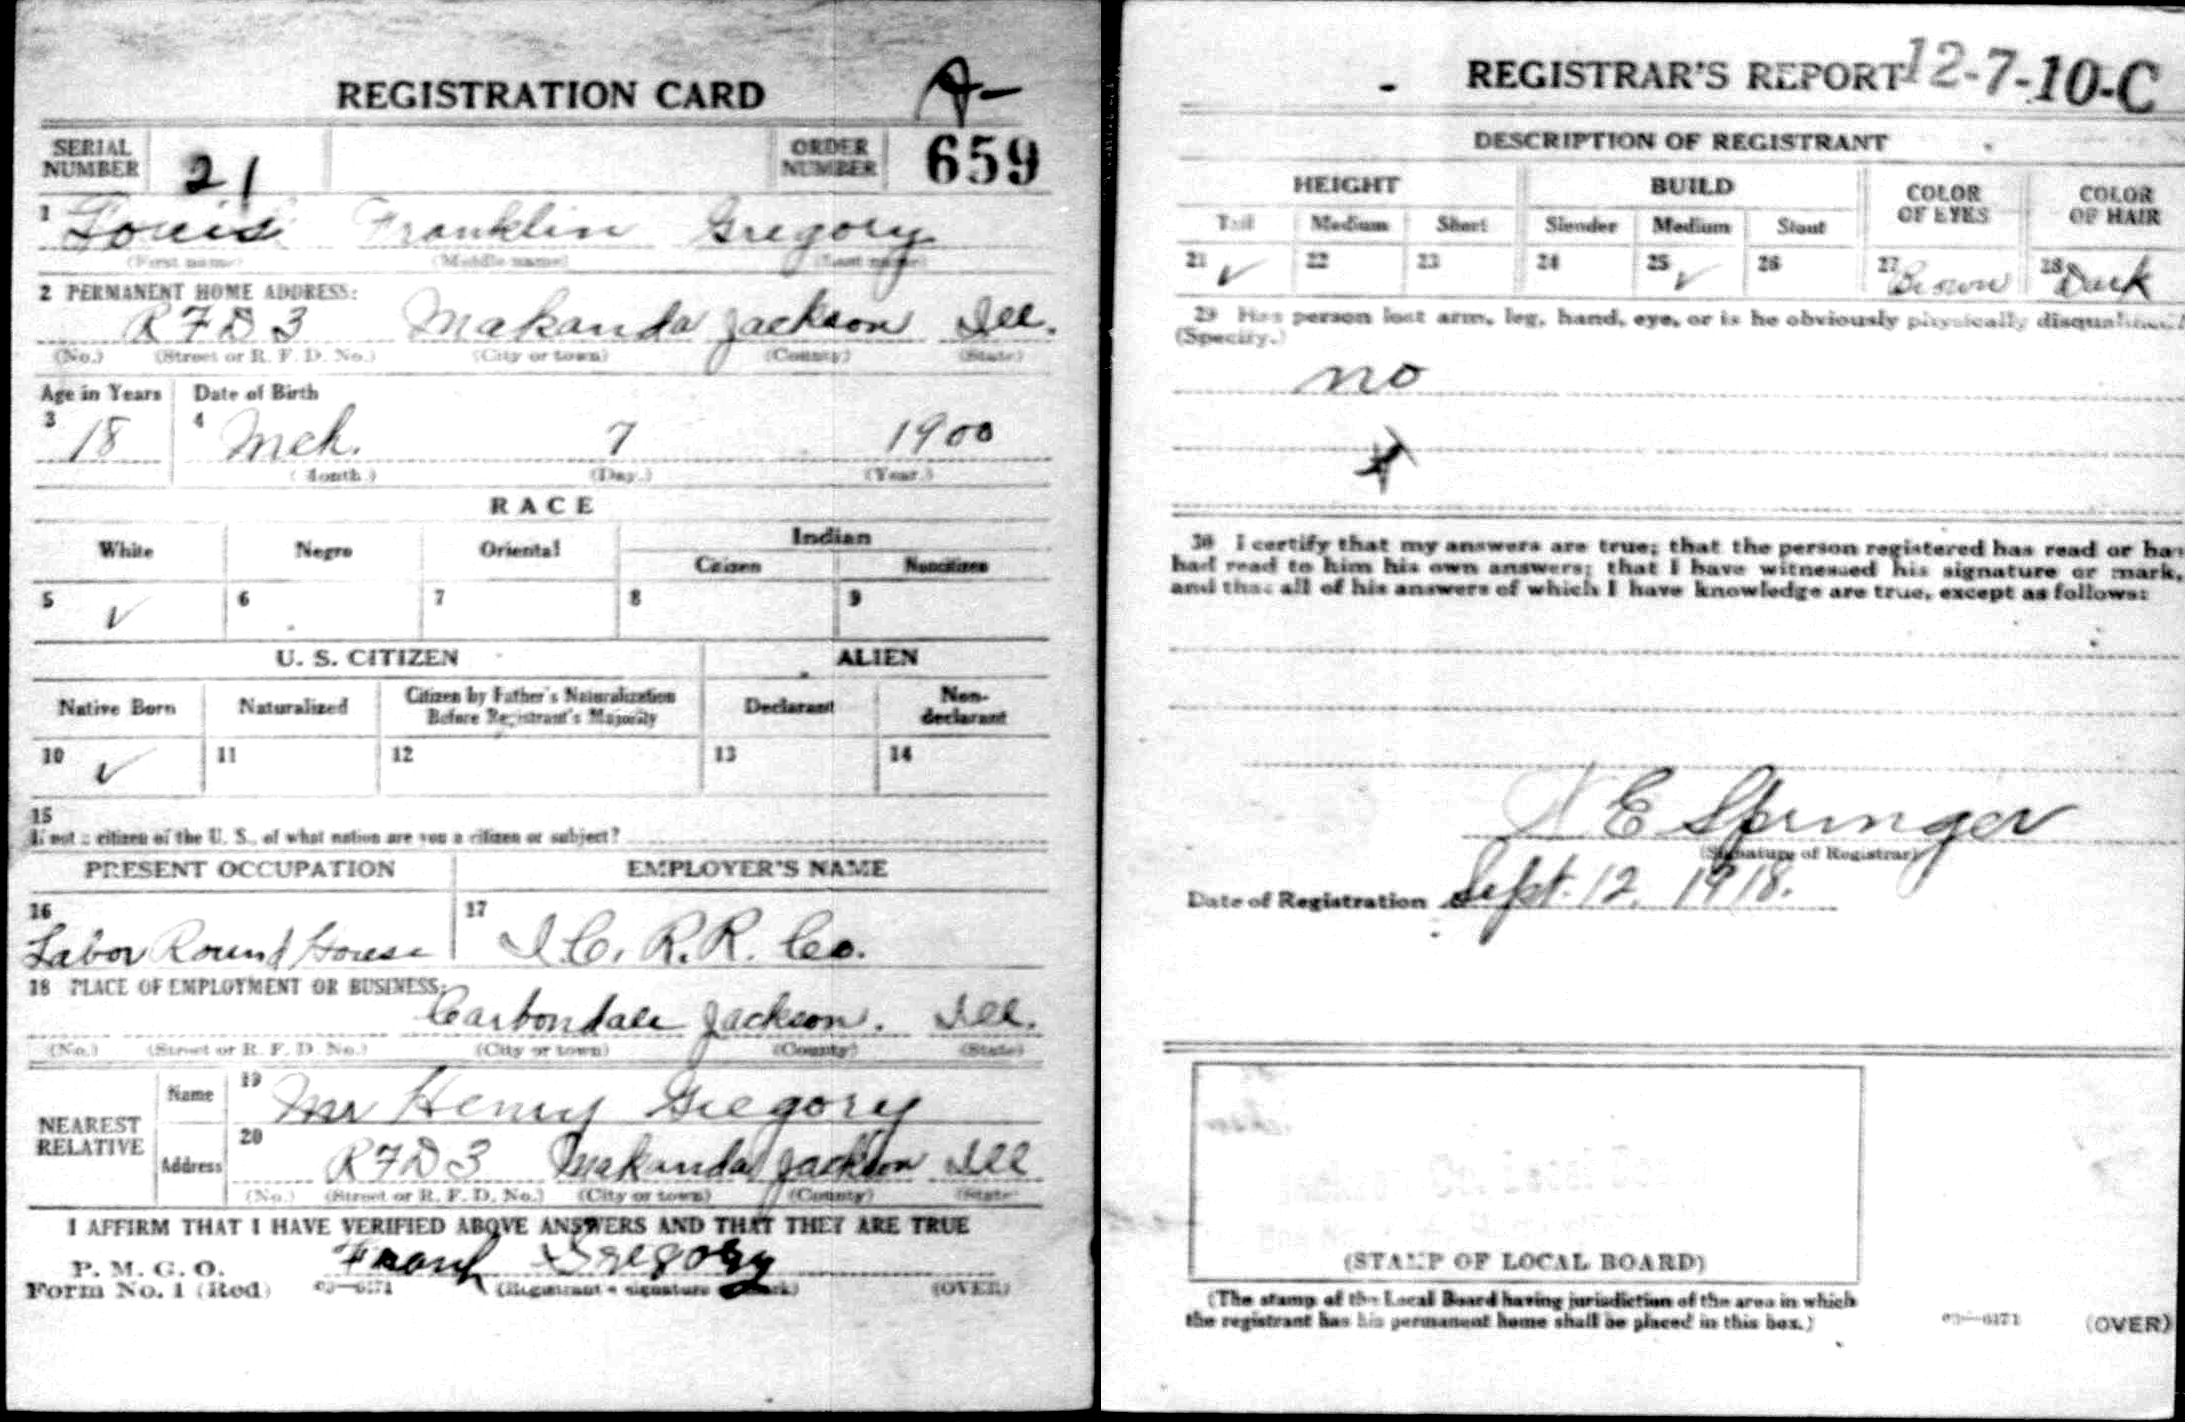 REGISTRATION CARD A-
SERIAL NUMBER 21 ORDER NUMBER 659
1 Louis Franklin Gregory
(First name) (Middle name) (Last name)
2 PERMANENT HOME ADDRESS:
R F D 3 Makanda Jackson Ill.
(No.) (Street or R. F. D. No.) (City or town) (County) (State)
Age in Years Date of Birth
3 18 4 Mch. 7 1900
(Month.) (Day.) (Year.)
RACE
White Negro Oriental Indian
Citizen Noncitizen
5 ✓ 6 7 8 9
U. S. CITIZEN ALIEN
Native Born Naturalized Citizen by Father's Naturalization Before Registrant's Majority Declarant Non-declarant
10 ✓ 11 12 13 14
15
If not a citizen of the U. S., of what nation are you a citizen or subject?
PRESENT OCCUPATION EMPLOYER'S NAME
16 Labor Round House 17 I.C. R.R. Co.
18 PLACE OF EMPLOYMENT OR BUSINESS:
Carbondale Jackson. Ill.
(No.) (Street or R. F. D. No.) (City or town) (County) (State)
NEAREST RELATIVE
Name 19 Mr Henry Gregory
Address 20 R F D 3 Makanda Jackson Ill
(No.) (Street or R. F. D. No.) (City or town) (County) (State)
I AFFIRM THAT I HAVE VERIFIED ABOVE ANSWERS AND THAT THEY ARE TRUE
P. M. G. O.
Form No. 1 (Red) 03—6171 Frank Gregory
(Registrant's signature or mark) (OVER)
REGISTRAR'S REPORT 12-7-10-C
DESCRIPTION OF REGISTRANT
HEIGHT BUILD COLOR OF EYES COLOR OF HAIR
Tall Medium Short Slender Medium Stout
21 ✓ 22 23 24 25 ✓ 26 27 Brown 28 Dark
29 Has person lost arm, leg, hand, eye, or is he obviously physically disqualified?
(Specify.)
no
30 I certify that my answers are true; that the person registered has read or has
had read to him his own answers; that I have witnessed his signature or mark,
and that all of his answers of which I have knowledge are true, except as follows:
E Springer
(Signature of Registrar)
Date of Registration Sept. 12, 1918.
(STAMP OF LOCAL BOARD)
(The stamp of the Local Board having jurisdiction of the area in which
the registrant has his permanent home shall be placed in this box.)
03—6171 (OVER)